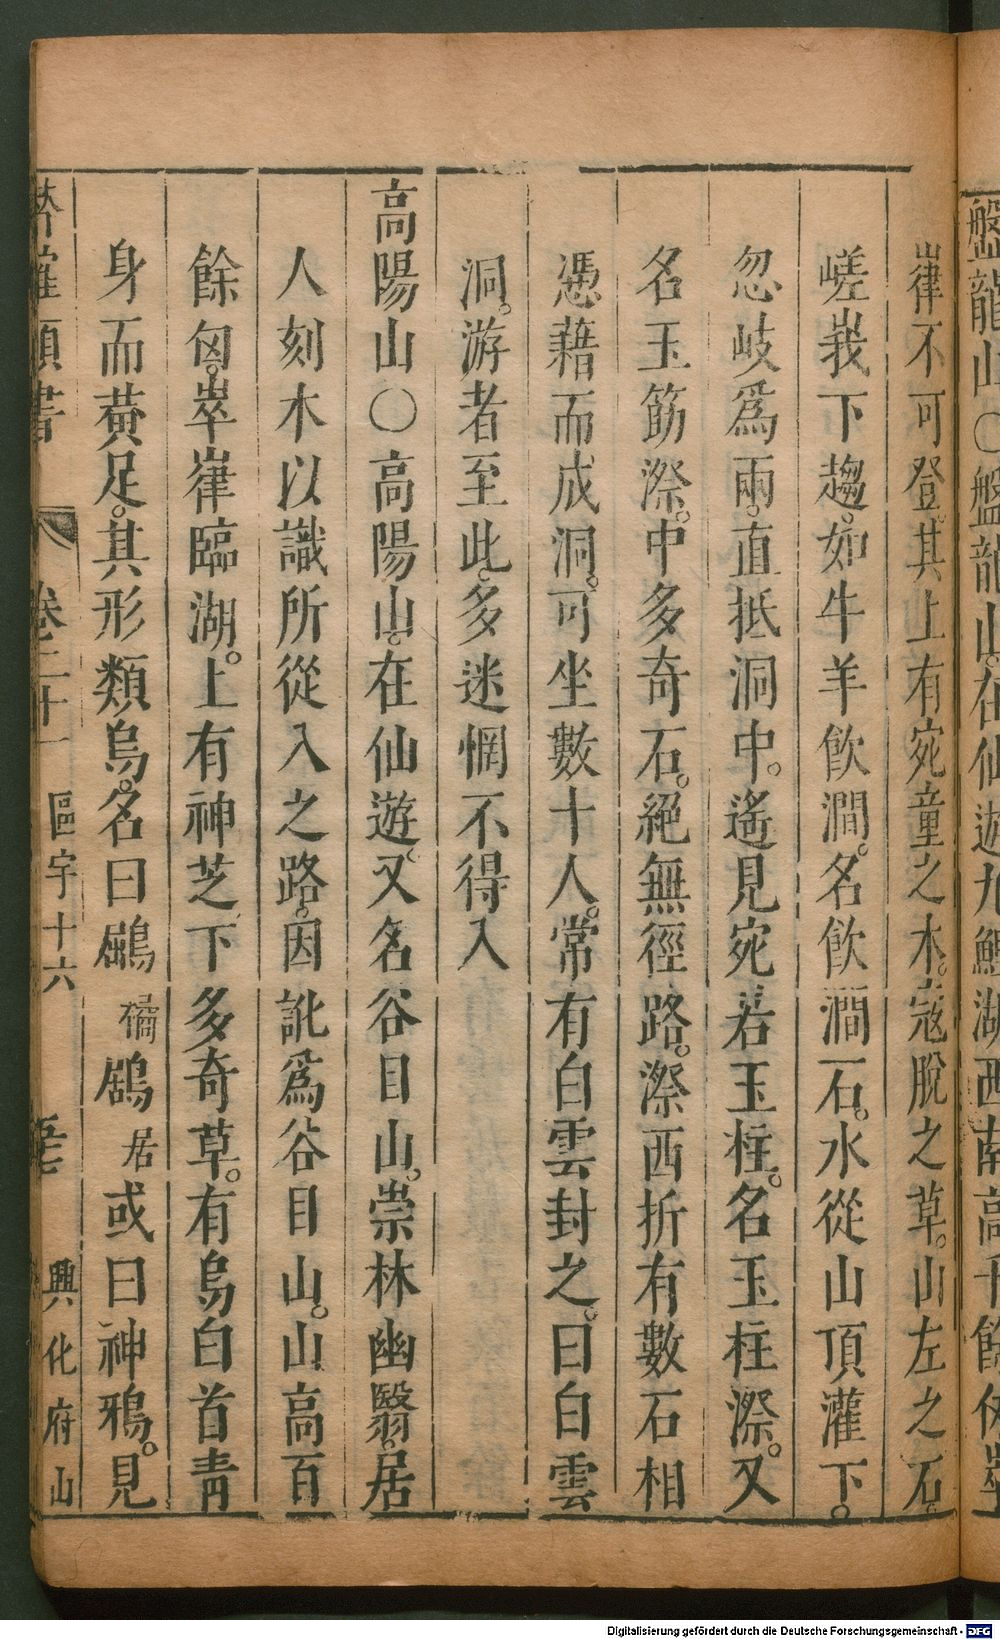 盤龍山○盤龍山。在仙遊九鯉湖西南高千餘仞崒
嵂不可登。其上有宛童之木。寇脫之草。山左之石。
嵯峩下趨。如牛羊飲澗。名飲澗石。水從山頂灌下。
忽岐爲兩。直抵洞中。遙見宛若玉柱。名玉柱漈。又
名玉筯漈。中多奇石。絕無徑路。漈西折有數石相
憑藉而成洞。可坐數十人。常有白雲封之。曰白雲
洞。游者至此。多迷惘不得入
高陽山○高陽山。在仙遊。又名谷目山。崇林幽翳。居
人刻木以識所從入之路。因訛爲谷目山。山高百
餘匃。崒嵂臨湖。上有神芝。下多奇草。有鳥白首靑
身而黃足。其形類烏。名曰鷱𪃹鶋居或曰神鴉。見
卷二十一 區宇十六 興化府山
Digitalisierung gefördert durch die Deutsche Forschungsgemeinschaft - DFG